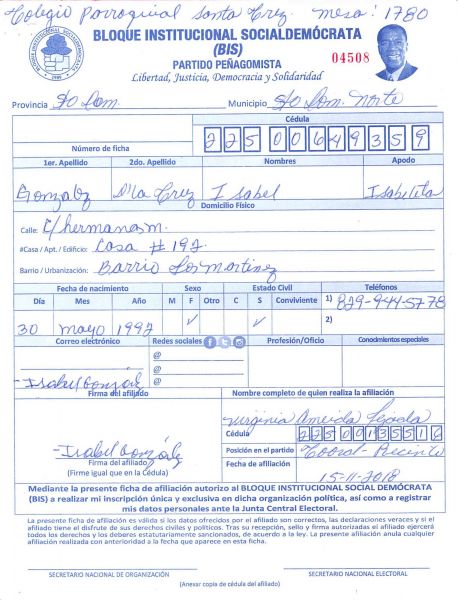 Colegio Parroquial Santa Cruz Mesa: 1780
BLOQUE INSTITUCIONAL SOCIALDEMÓCRATA
(BIS)
PARTIDO PEÑAGOMISTA
Libertad, Justicia, Democracia y Solidaridad
04508
Provincia Sto Dom. Municipio Sto Dom. Norte
Cédula
Número de ficha 225 0064935 9
1er. Apellido 2do. Apellido Nombres Apodo
Gonzalez D'la Cruz Isabel Isabelita
Domicilio Físico
Calle: C/hermanas m.
#Casa / Apt. / Edificio: Casa # 192
Barrio / Urbanización: Barrio Los Martinez
Fecha de nacimiento Sexo Estado Civil Teléfonos
Día Mes Año M F Otro C S Conviviente 1) 829-944-5778
30 mayo 1992 ✓ ✓ 2)
Correo electrónico Redes sociales Profesión/Oficio Conocimientos especiales
@
@
Isabel Gonzalez @
Firma del afiliado Nombre completo de quien realiza la afiliación
Virginia Almeida
Cédula 225 0013551 6
Isabel González Posición en el partido
Firma del afiliado
(Firme igual que en la Cédula) Fecha de afiliación 15-11-2018
Mediante la presente ficha de afiliación autorizo al BLOQUE INSTITUCIONAL SOCIAL DEMÓCRATA
(BIS) a realizar mi inscripción única y exclusiva en dicha organización política, así como a registrar
mis datos personales ante la Junta Central Electoral.
La presente ficha de afiliación es válida si los datos ofrecidos por el afiliado son correctos, las declaraciones veraces y si el
afiliado tiene el disfrute de sus derechos civiles y políticos. Tras su recepción, sello y firma autorizadas el afiliado ejercerá
todos los derechos y los deberes estatutariamente sancionados, de acuerdo a la ley. La presente afiliación anula cualquier
afiliación realizada con anterioridad a la fecha que aparece en esta ficha.
SECRETARIO NACIONAL DE ORGANIZACIÓN SECRETARIO NACIONAL ELECTORAL
(Anexar copia de cédula del afiliado)